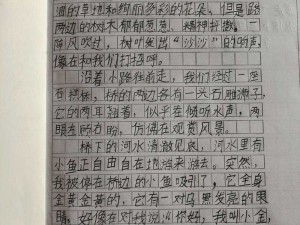 通的草地和绚丽多彩的花朵。但是路
两边的树木郁郁葱葱，精神抖擞。一
阵风吹过，树叶发出“沙沙”的响声，
像在和我们打招呼。
沿着小路往前走，我们经过一座
石拱桥，桥的两边各有一只石雕狮子，
它的两耳翘着，似乎在倾听水声，两
眼左顾右盼，仿佛在观赏风景。
桥下的河水清澈见底，河水里有
小鱼正自由自在地游来游去。突然，
我被停在桥边的小鱼吸引了，它全身
金黄金黄的，它有一对乌黑发亮的眼
睛。好像在对我说：“你好，我叫小金，